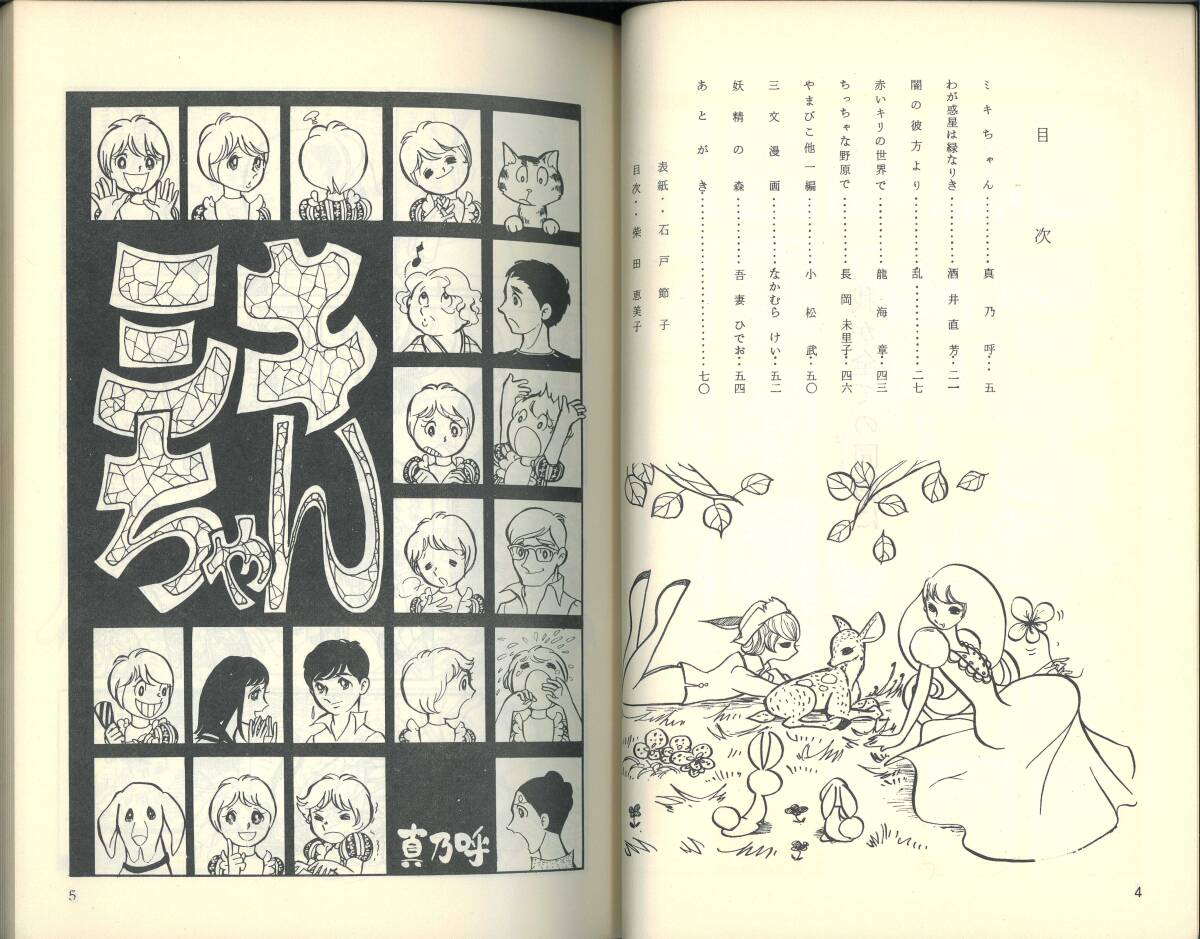 目次
ミキちゃん‥‥‥‥真乃呼‥五
わが惑星は緑なりき‥‥‥‥酒井直芳‥二一
闇の彼方より‥‥‥‥乱‥‥‥‥二七
赤いキリの世界で‥‥‥‥龍海章‥四三
ちっちゃな野原で‥‥‥‥長岡未里子‥四六
やまびこ他一編‥‥‥‥小松武‥五〇
三文漫画‥‥‥‥なかむらけい‥五二
妖精の森‥‥‥‥吾妻ひでお‥五四
あとがき‥‥‥‥‥‥‥‥七〇
表紙‥石戸節子
目次‥柴田恵美子
4
ミキちゃん
真乃呼
5